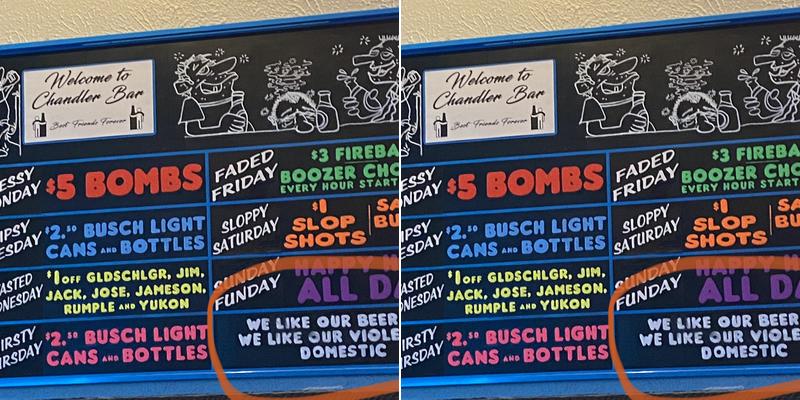 Welcome to
Chandler Bar
Best Friends Forever
ESSY
ONDAY
$5 BOMBS
FADED
FRIDAY
$3 FIREBA
BOOZER CHO
EVERY HOUR START
IPSY
ESDAY
$2.50 BUSCH LIGHT
CANS AND BOTTLES
SLOPPY
SATURDAY
$1
SLOP
SHOTS
SA
BU
ASTED
DNESDAY
$1 OFF GLDSCHLGR, JIM,
JACK, JOSE, JAMESON,
RUMPLE AND YUKON
SUNDAY
FUNDAY
HAPPY H
ALL DA
IRSTY
URSDAY
$2.50 BUSCH LIGHT
CANS AND BOTTLES
WE LIKE OUR BEER
WE LIKE OUR VIOLE
DOMESTIC
Welcome to
Chandler Bar
Best Friends Forever
ESSY
NDAY
$5 BOMBS
FADED
FRIDAY
$3 FIREBA
BOOZER CHO
EVERY HOUR START
IPSY
ESDAY
$2.50 BUSCH LIGHT
CANS AND BOTTLES
SLOPPY
SATURDAY
$1
SLOP
SHOTS
SA
BU
ASTED
NESDAY
$1 OFF GLDSCHLGR, JIM,
JACK, JOSE, JAMESON,
RUMPLE AND YUKON
SUNDAY
FUNDAY
HAPPY H
ALL DA
IRSTY
RSDAY
$2.50 BUSCH LIGHT
CANS AND BOTTLES
WE LIKE OUR BEER
WE LIKE OUR VIOLE
DOMESTIC